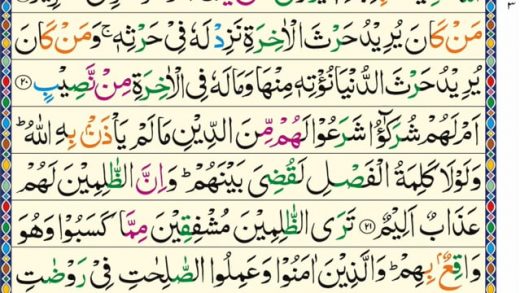 مَنۡ كَانَ يُرِيۡدُ حَرۡثَ الۡاٰخِرَةِ نَزِدۡ لَهٗ فِىۡ حَرۡثِهٖ‌ۚ وَمَنۡ كَانَ
يُرِيۡدُ حَرۡثَ الدُّنۡيَا نُؤۡتِهٖ مِنۡهَا وَمَا لَهٗ فِى الۡاٰخِرَةِ مِنۡ نَّصِيۡبٍ ۲۰
اَمۡ لَهُمۡ شُرَكٰٓؤُا شَرَعُوۡا لَهُمۡ مِّنَ الدِّيۡنِ مَا لَمۡ يَاۡذَنۡۢ بِهِ اللّٰهُ‌ؕ
وَلَوۡلَا كَلِمَةُ الۡفَصۡلِ لَقُضِىَ بَيۡنَهُمۡ‌ؕ وَاِنَّ الظّٰلِمِيۡنَ لَهُمۡ
عَذَابٌ اَلِيۡمٌ ۲۱ تَرَى الظّٰلِمِيۡنَ مُشۡفِقِيۡنَ مِمَّا كَسَبُوۡا وَهُوَ
وَاقِعٌۢ بِهِمۡ‌ؕ وَالَّذِيۡنَ اٰمَنُوۡا وَعَمِلُوا الصّٰلِحٰتِ فِىۡ رَوۡضٰتِ